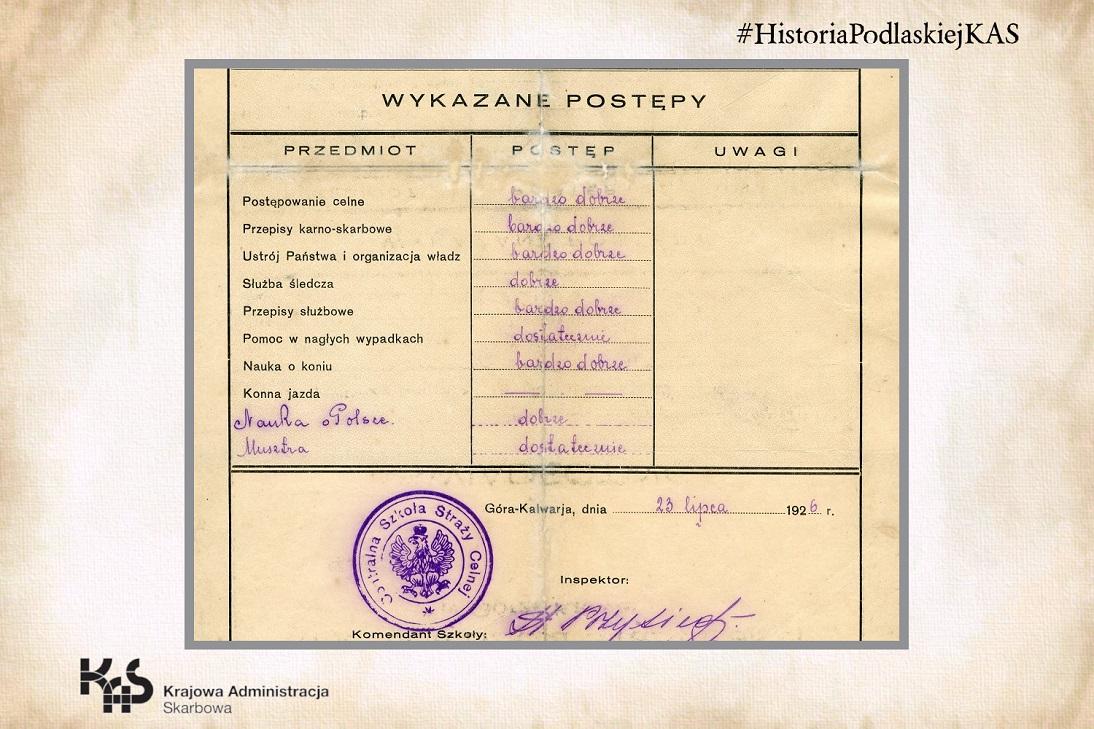 #HistoriaPodlaskiejKAS
WYKAZANE POSTĘPY
PRZEDMIOT POSTĘP UWAGI
Postępowanie celne bardzo dobrze
Przepisy karno-skarbowe bardzo dobrze
Ustrój Państwa i organizacja władz bardzo dobrze
Służba śledcza dobrze
Przepisy służbowe bardzo dobrze
Pomoc w nagłych wypadkach dostatecznie
Nauka o koniu bardzo dobrze
Konna jazda — —
Nauka o Polsce. dobrze
Musztra dostatecznie
Góra-Kalwarja, dnia 23 lipca 1926 r.
Centralna Szkoła Straży Celnej
Inspektor:
Komendant Szkoły:
KAS Krajowa Administracja
Skarbowa